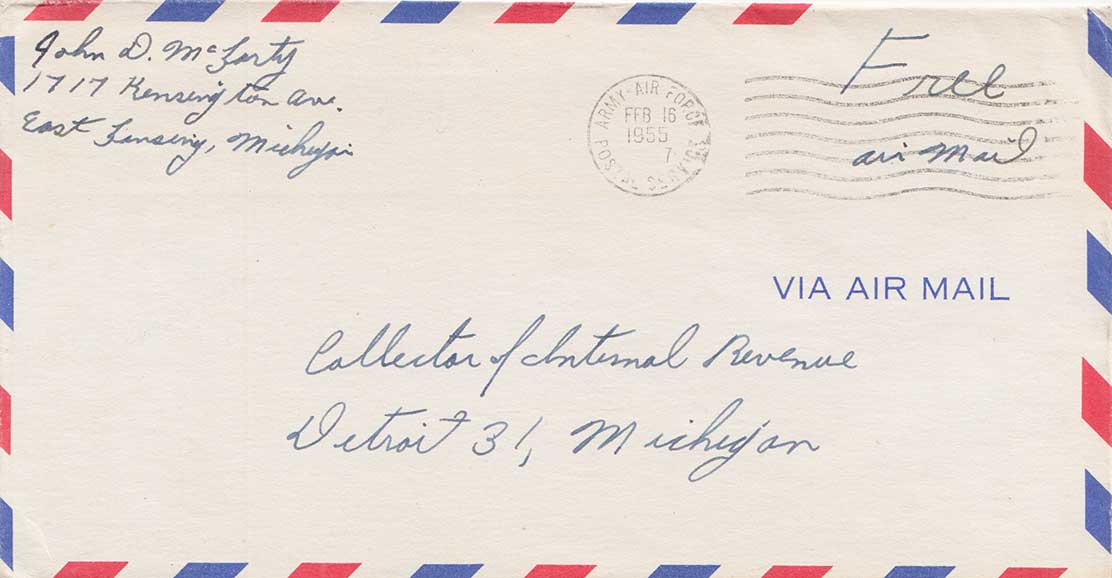 John D. McLarty
1717 Kensington Ave.
East Lansing, Michigan
ARMY-AIR FORCE POSTAL SERVICE
FEB 16
1955
7
Free
air Mail
VIA AIR MAIL
Collector of Internal Revenue
Detroit 31, Michigan